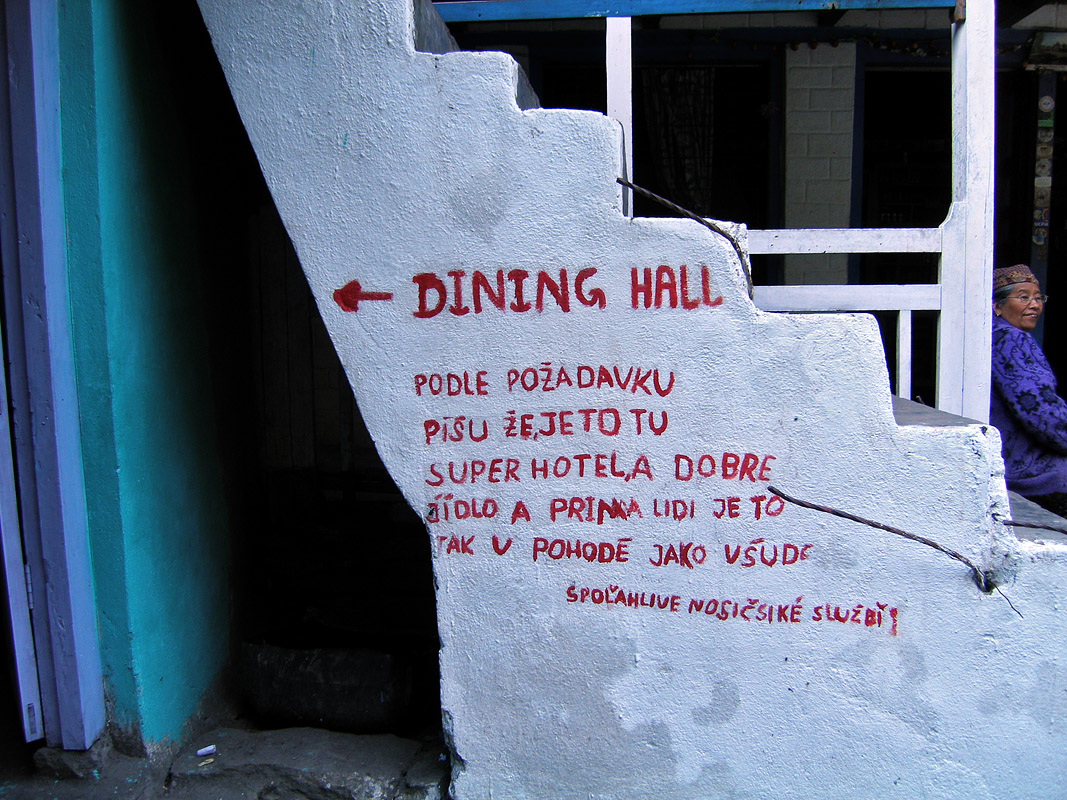 DINING HALL
PODLE POŽADAVKU
PÍŠU ŽE,JE TO TU
SUPER HOTEL,A DOBRE
JÍDLO A PRIMA LIDI JE TO
TAK V POHODĚ JAKO VŠUDE
ŠPOĽAHLIVE NOSIČSIKÉ SLUŽBÝ!